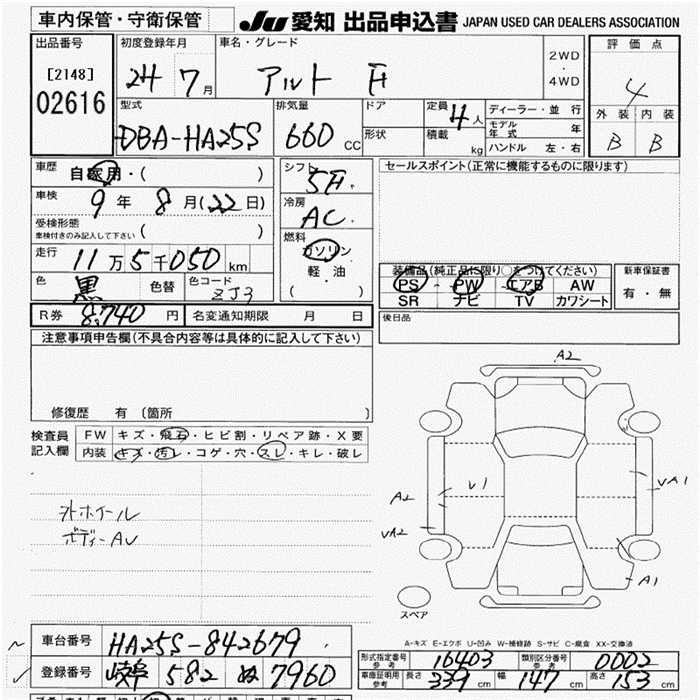 車内保管・守衛保管
JU 愛知 出品申込書 JAPAN USED CAR DEALERS ASSOCIATION
出品番号
[2148]
02616
初度登録年月
24 7月
車名・グレード
アルト F
2WD
・
4WD
評価点
4
外装 内装
B B
型式
DBA-HA25S
排気量
660 CC
ドア
形状
定員 4人
積載 kg
ディーラー・並行
モデル年式 年
ハンドル 左・右
車歴
自家用・( )
車検
9年 8月(22日)
受検形態
車検付きのみ記入して下さい ( )
走行
11万5千050km
色
黒 色替
色コード
ZJ3
シフト
5F
冷房
AC
燃料
ガソリン
軽・油
( )
セールスポイント(正常に機能するものに限ります)
装備品(純正品に限り○をつけてください)
PS PW エアB AW
SR ナビ TV カワシート
新車保証書
有・無
R券 8,740円
名変通知期限 月 日
後日品
注意事項申告欄(不具合内容等は具体的に記入して下さい)
修復歴 有(箇所 )
検査員
記入欄
FW キズ・飛石・ヒビ割・リペア跡・X要
内装 キズ・汚レ・コゲ・穴・スレ・キレ・破レ
外ホイール
ボディーAU
A2
V1
VA1
A2
VA2
A1
スペア
A-キズ E-エクボ U-凹み W-補修跡 S-サビ C-腐食 XX-交換済
車台番号 HA25S-842679
登録番号 岐阜 582 ぬ 7960
形式指定番号
参考
16403
類別区分番号
参考
0002
車庫証明用
参考
長さ 339cm 幅 147cm 高さ 153cm